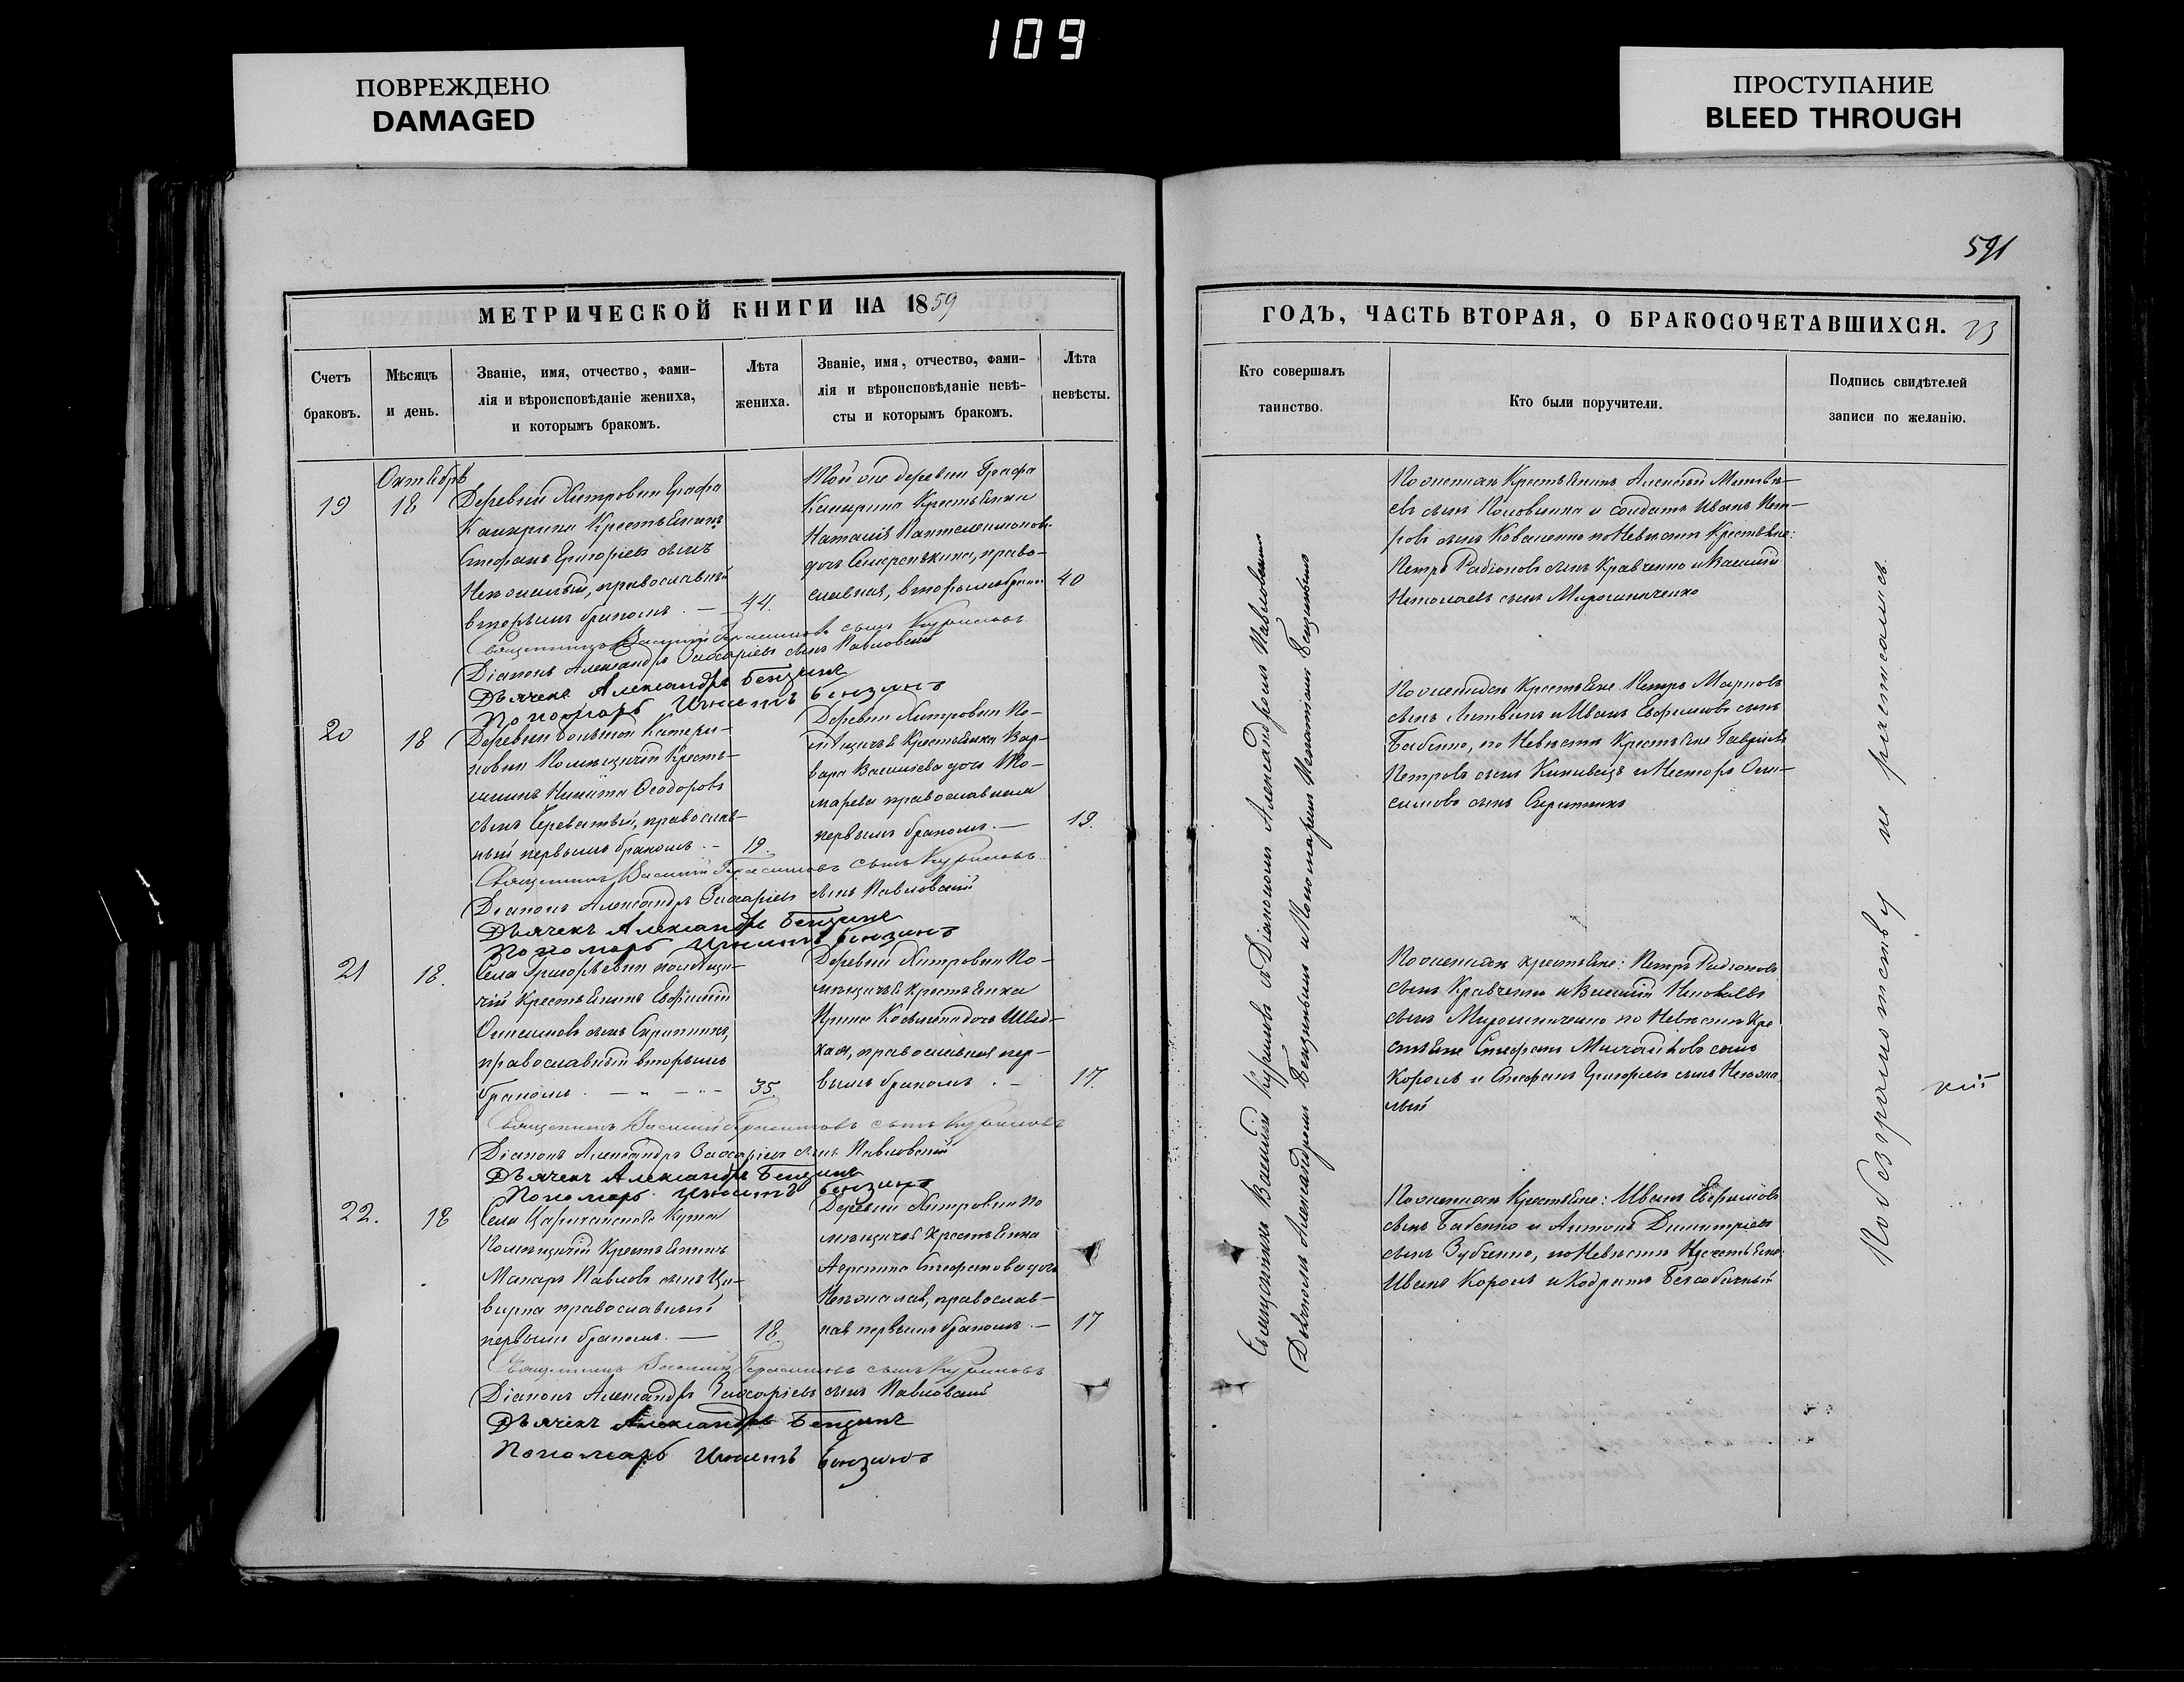 109
ПОВРЕЖДЕНО
DAMAGED
ПРОСТУПАНИЕ
BLEED THROUGH
МЕТРИЧЕСКОЙ КНИГИ НА 1859
Счетъ браковъ.
Мѣсяцъ и день.
Званіе, имя, отчество, фами-
лія и вѣроисповѣданіе жениха,
и которымъ бракомъ.
Лѣта жениха.
Званіе, имя, отчество, фами-
лія и вѣроисповѣданіе невѣ-
сты и которымъ бракомъ.
Лѣта невѣсты.
Октября
19
18
Деревни Хитровки Графа
Канкрина Крестьянинъ
Стефанъ Григорьевъ сынъ
православный
вторымъ бракомъ. —
44.
Той же деревни Графа
Канкрина Крестьянка
Наталія Пантелеимонова
дочь право-
славная, вторымъ бракомъ
40
Священникъ Василій Герасимовъ сынъ Куриловъ
Діаконъ Александръ Захаріевъ сынъ Павловскій
Дьячекъ Александръ Бензинъ
Пономарь Игнатъ Бензинъ
20
18
Деревни
Помѣщичій Кресть-
янинъ Никита Ѳеодоровъ
сынъ православ-
ный первымъ бракомъ. —
19.
Деревни Хитровки По-
мѣщичья Крестьянка Вар-
вара Васильева дочь
православная
первымъ бракомъ. —
19.
Священникъ Василій Герасимовъ сынъ Куриловъ
Діаконъ Александръ Захаріевъ сынъ Павловскій
Дьячекъ Александръ Бензинъ
Пономарь Игнатъ Бензинъ
21
18.
Села Григорьевки помѣщи-
чій Крестьянинъ Евфимій
Онисимовъ сынъ Скрипникъ,
православный вторымъ
бракомъ.
35.
Деревни Хитровки По-
мѣщичья Крестьянка
Ирина дочь Швед-
кая, православная пер-
вымъ бракомъ. —
17.
Священникъ Василій Герасимовъ сынъ Куриловъ
Діаконъ Александръ Захаріевъ сынъ Павловскій
Дьячекъ Александръ Бензинъ
Пономарь Игнатъ Бензинъ
22.
18
Села
Помѣщичій Крестьянинъ
Макаръ Павловъ сынъ
православный
первымъ бракомъ. —
18
Деревни Хитровки По
мѣщичья Крестьянка
Агрипина Стефанова дочь
православ-
ная первымъ бракомъ. —
17
Священникъ Василій Герасимовъ сынъ Куриловъ
Діаконъ Александръ Захаріевъ сынъ Павловскій
Дьячекъ Александръ Бензинъ
Пономарь Игнатъ Бензинъ
591
ГОДЪ, ЧАСТЬ ВТОРАЯ, О БРАКОСОЧЕТАВШИХСЯ.
23
Кто совершалъ таинство.
Кто были поручители.
Подпись свидѣтелей записи по желанію.
Священникъ Василій Куриловъ съ Діакономъ Александромъ Павловскимъ
Дьячкомъ Александромъ Бензинымъ и Пономаремъ Игнатіемъ Бензинымъ
По женихѣ Крестьянинъ Алексѣй Матвѣ-
евъ сынъ и солдатъ Иванъ Пет-
ровъ сынъ Коваленко по Невѣстѣ Крестьяне:
Петръ Радіоновъ сынъ Кравченко и Василій
Николаевъ сынъ Мирошниченко
По женихѣ Крестьяне Петръ Марковъ
сынъ Литвинъ и Иванъ Евфимовъ сынъ
Бабенко, по Невѣстѣ Крестьяне Гавріилъ
Петровъ сынъ и Несторъ Они-
симовъ сынъ Скрипникъ
По женихѣ крестьяне: Петръ Радіоновъ
сынъ Кравченко и Василій Николаевъ
сынъ Мирошниченко по Невѣстѣ Кре
стьяне Стефанъ Михайловъ сынъ
Король и Стефанъ Григорьевъ сынъ
По женихѣ Крестьяне: Иванъ Евфимовъ
сынъ Бабенко и Антонъ Димитріевъ
сынъ Зубченко, по Невѣстѣ Крестьяне:
Иванъ Король и Кодратъ
По безграмотству не расписались.